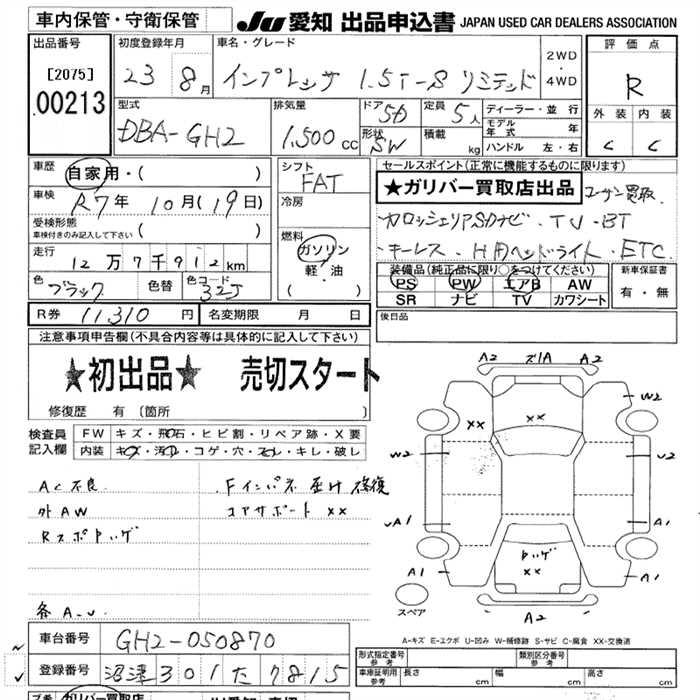 車内保管・守衛保管
JU 愛知 出品申込書 JAPAN USED CAR DEALERS ASSOCIATION
出品番号
[2075]
00213
初度登録年月
23 8月
車名・グレード
インプレッサ 1.5i-S リミテッド
2WD
・
4WD
評価点
R
外装 内装
C C
型式
DBA-GH2
排気量
1,500cc
ドア 5D
形状 SW
定員 5人
積載 kg
ディーラー・並行
モデル年式 年
ハンドル 左・右
車歴
自家用・( )
車検
R7年 10月(19日)
受検形態
車検付きのみ記入して下さい ( )
走行
12万7千912km
色 ブラック 色替 色コード 32J
シフト
FAT
冷房
燃料
ガソリン
軽・油
( )
セールスポイント(正常に機能するものに限ります)
★ガリバー買取店出品 ユーザー買取
カロッツェリアSDナビ・TV・BT
キーレス・HIDヘッドライト・ETC
装備品(純正品に限り○をつけてください)
PS PW エアB AW
SR ナビ TV カワシート
新車保証書
有・無
R券 11,310円 名変期限 月 日
後日品
注意事項申告欄(不具合内容等は具体的に記入して下さい)
★初出品★ 売切スタート
修復歴 有 〔箇所 〕
検査員
記入欄
FW キズ・飛石・ヒビ割・リペア跡・X要
内装 キズ・汚れ・コゲ・穴・スレ・キレ・破レ
AC不良 ・Fインパネ 曲り 修復
外AW コアサポート XX
Rスポ
各A.U
車台番号 GH2-050870
登録番号 沼津301た7815
A2 ズ1A A2
XX XX W2
W2 U2
A1 A1
A1 XX A1
A2
スペア
A-キズ E-エクボ U-凹み W-補修跡 S-サビ C-腐食 XX-交換済
形式指定番号 参考
類別区分番号 参考
車庫証明用 参考 長さ cm 幅 cm 高さ cm
ガリバー買取店 JU愛知